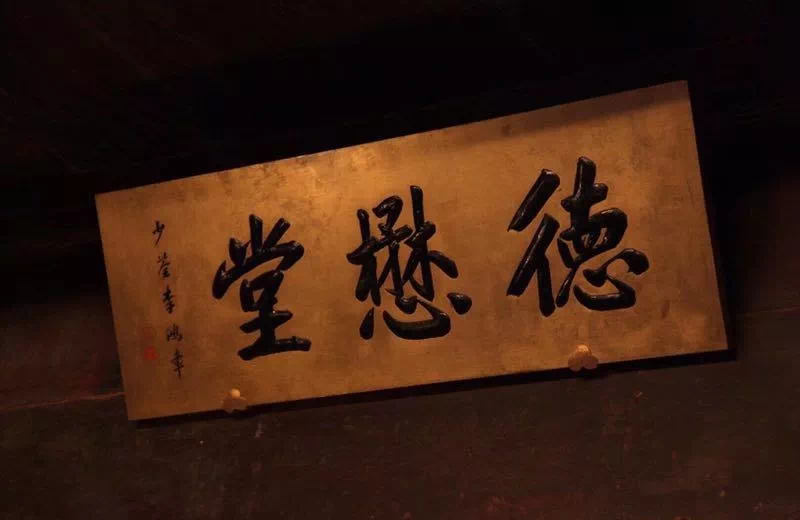 德懋堂
少荃李鴻章